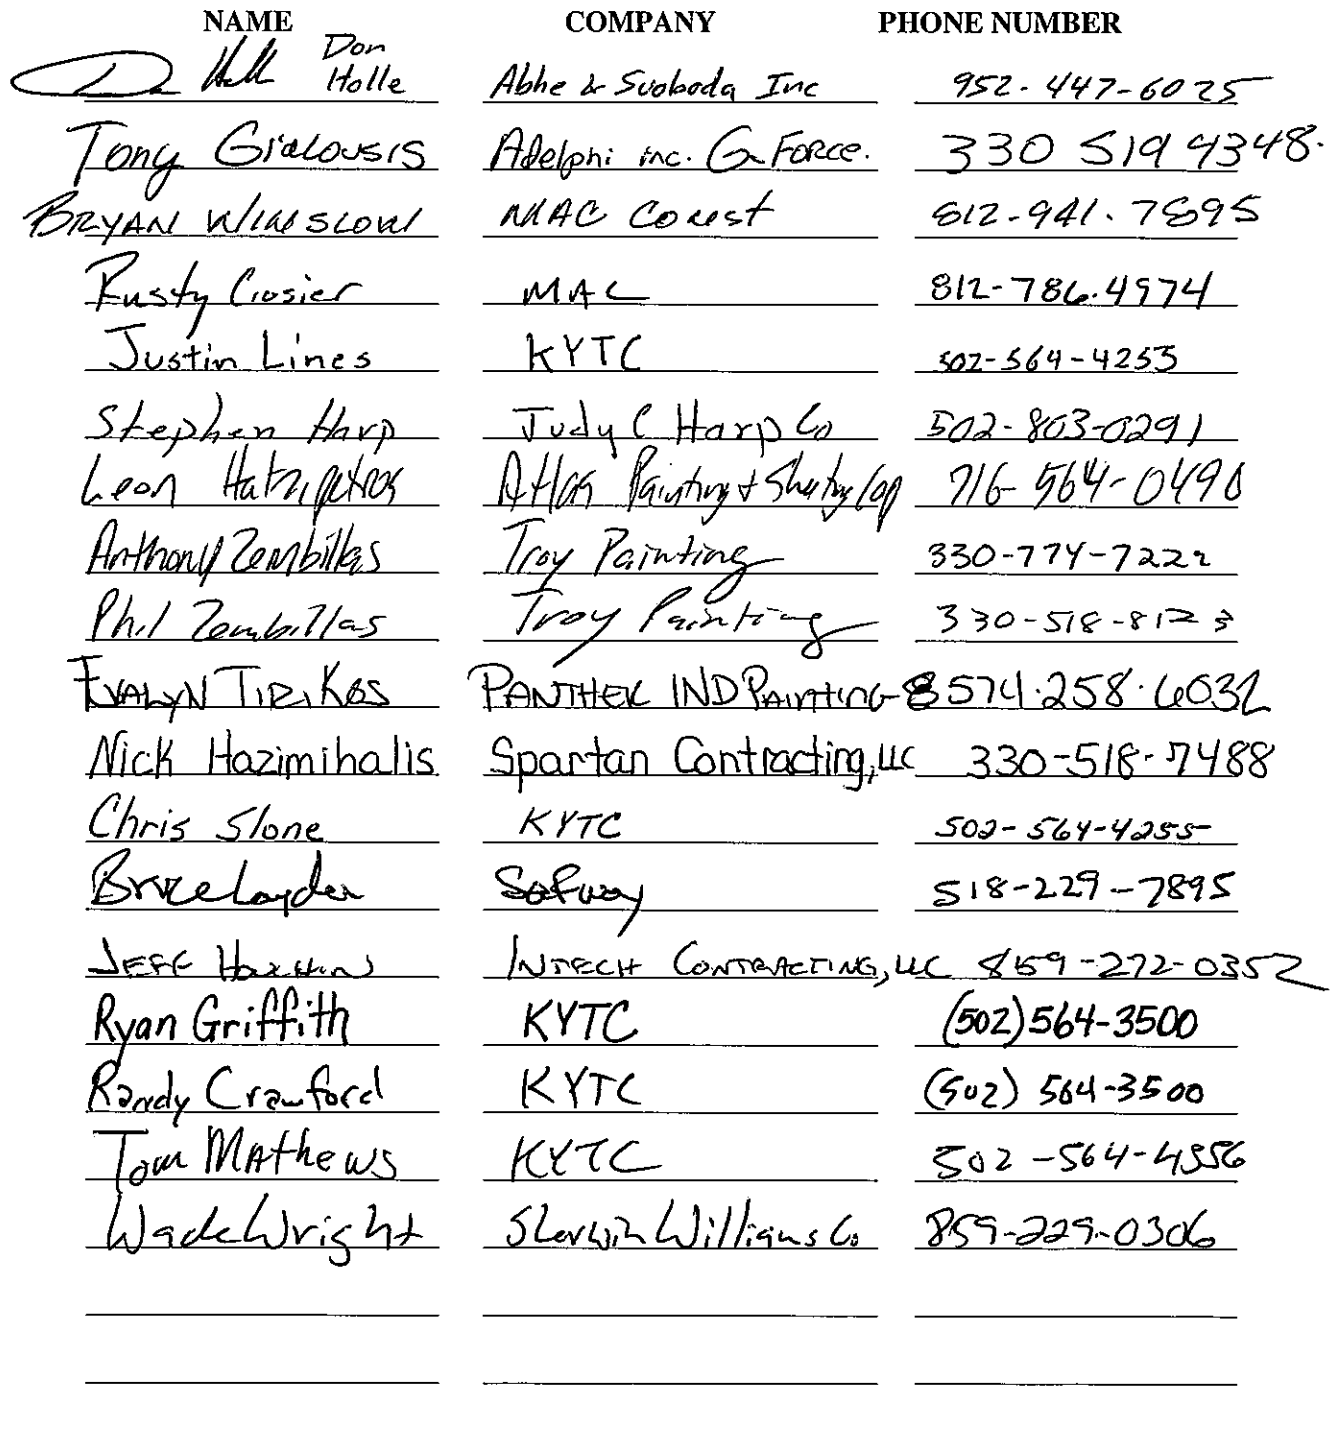 NAME COMPANY PHONE NUMBER
Don Holle Abhe & Svoboda Inc 952-447-6025
Tony Gialousis Adelphi inc. G Force. 330 519 4348.
BRYAN WINSLOW MAC Const 812-941-7895
Rusty Crosier MAC 812-786-4974
Justin Lines KYTC 502-564-4253
Stephen Harp Judy C Harp Co 502-803-0291
Leon Hatzipetros Atlas Painting & 716-564-0490
Anthony Zembillas Troy Painting 330-774-7222
Phil Zembillas Troy Painting 330-518-8123
EVALYN TIRIKOS PANTHER IND PAINTING 574-258-6032
Nick Hazimihalis Spartan Contracting, LLC 330-518-7488
Chris Slone KYTC 502-564-4255
Bruce Layden Safway 518-229-7895
JEFF INTECH CONTRACTING, LLC 859-272-0352
Ryan Griffith KYTC (502) 564-3500
Randy Crawford KYTC (502) 564-3500
Tom MAthews KYTC 502-564-4556
Wade Wright Sherwin Williams Co 859-229-0306